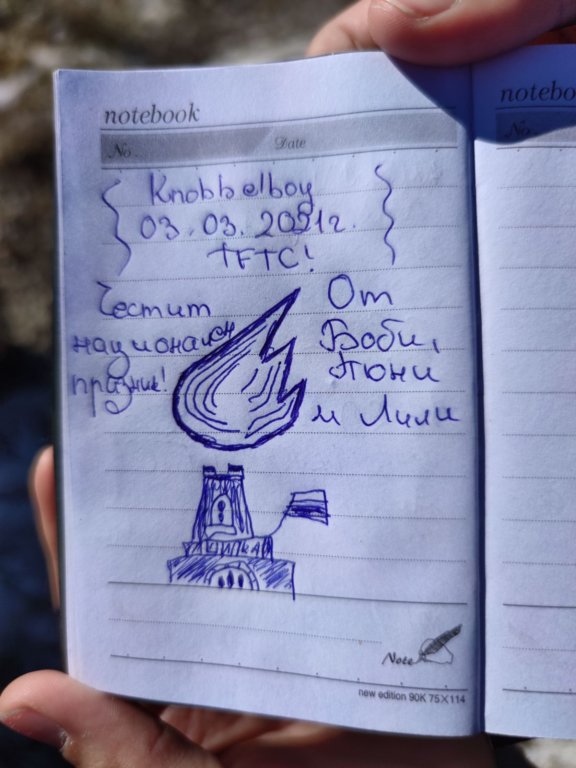 notebook
No.
Date
Knobbelboy
03.03.2021г.
TFTC!
Честит
национален
празник!
От
Боби,
Тони
и Лили
ШИПКА
Note
new edition 90K 75X114
notebo
No.